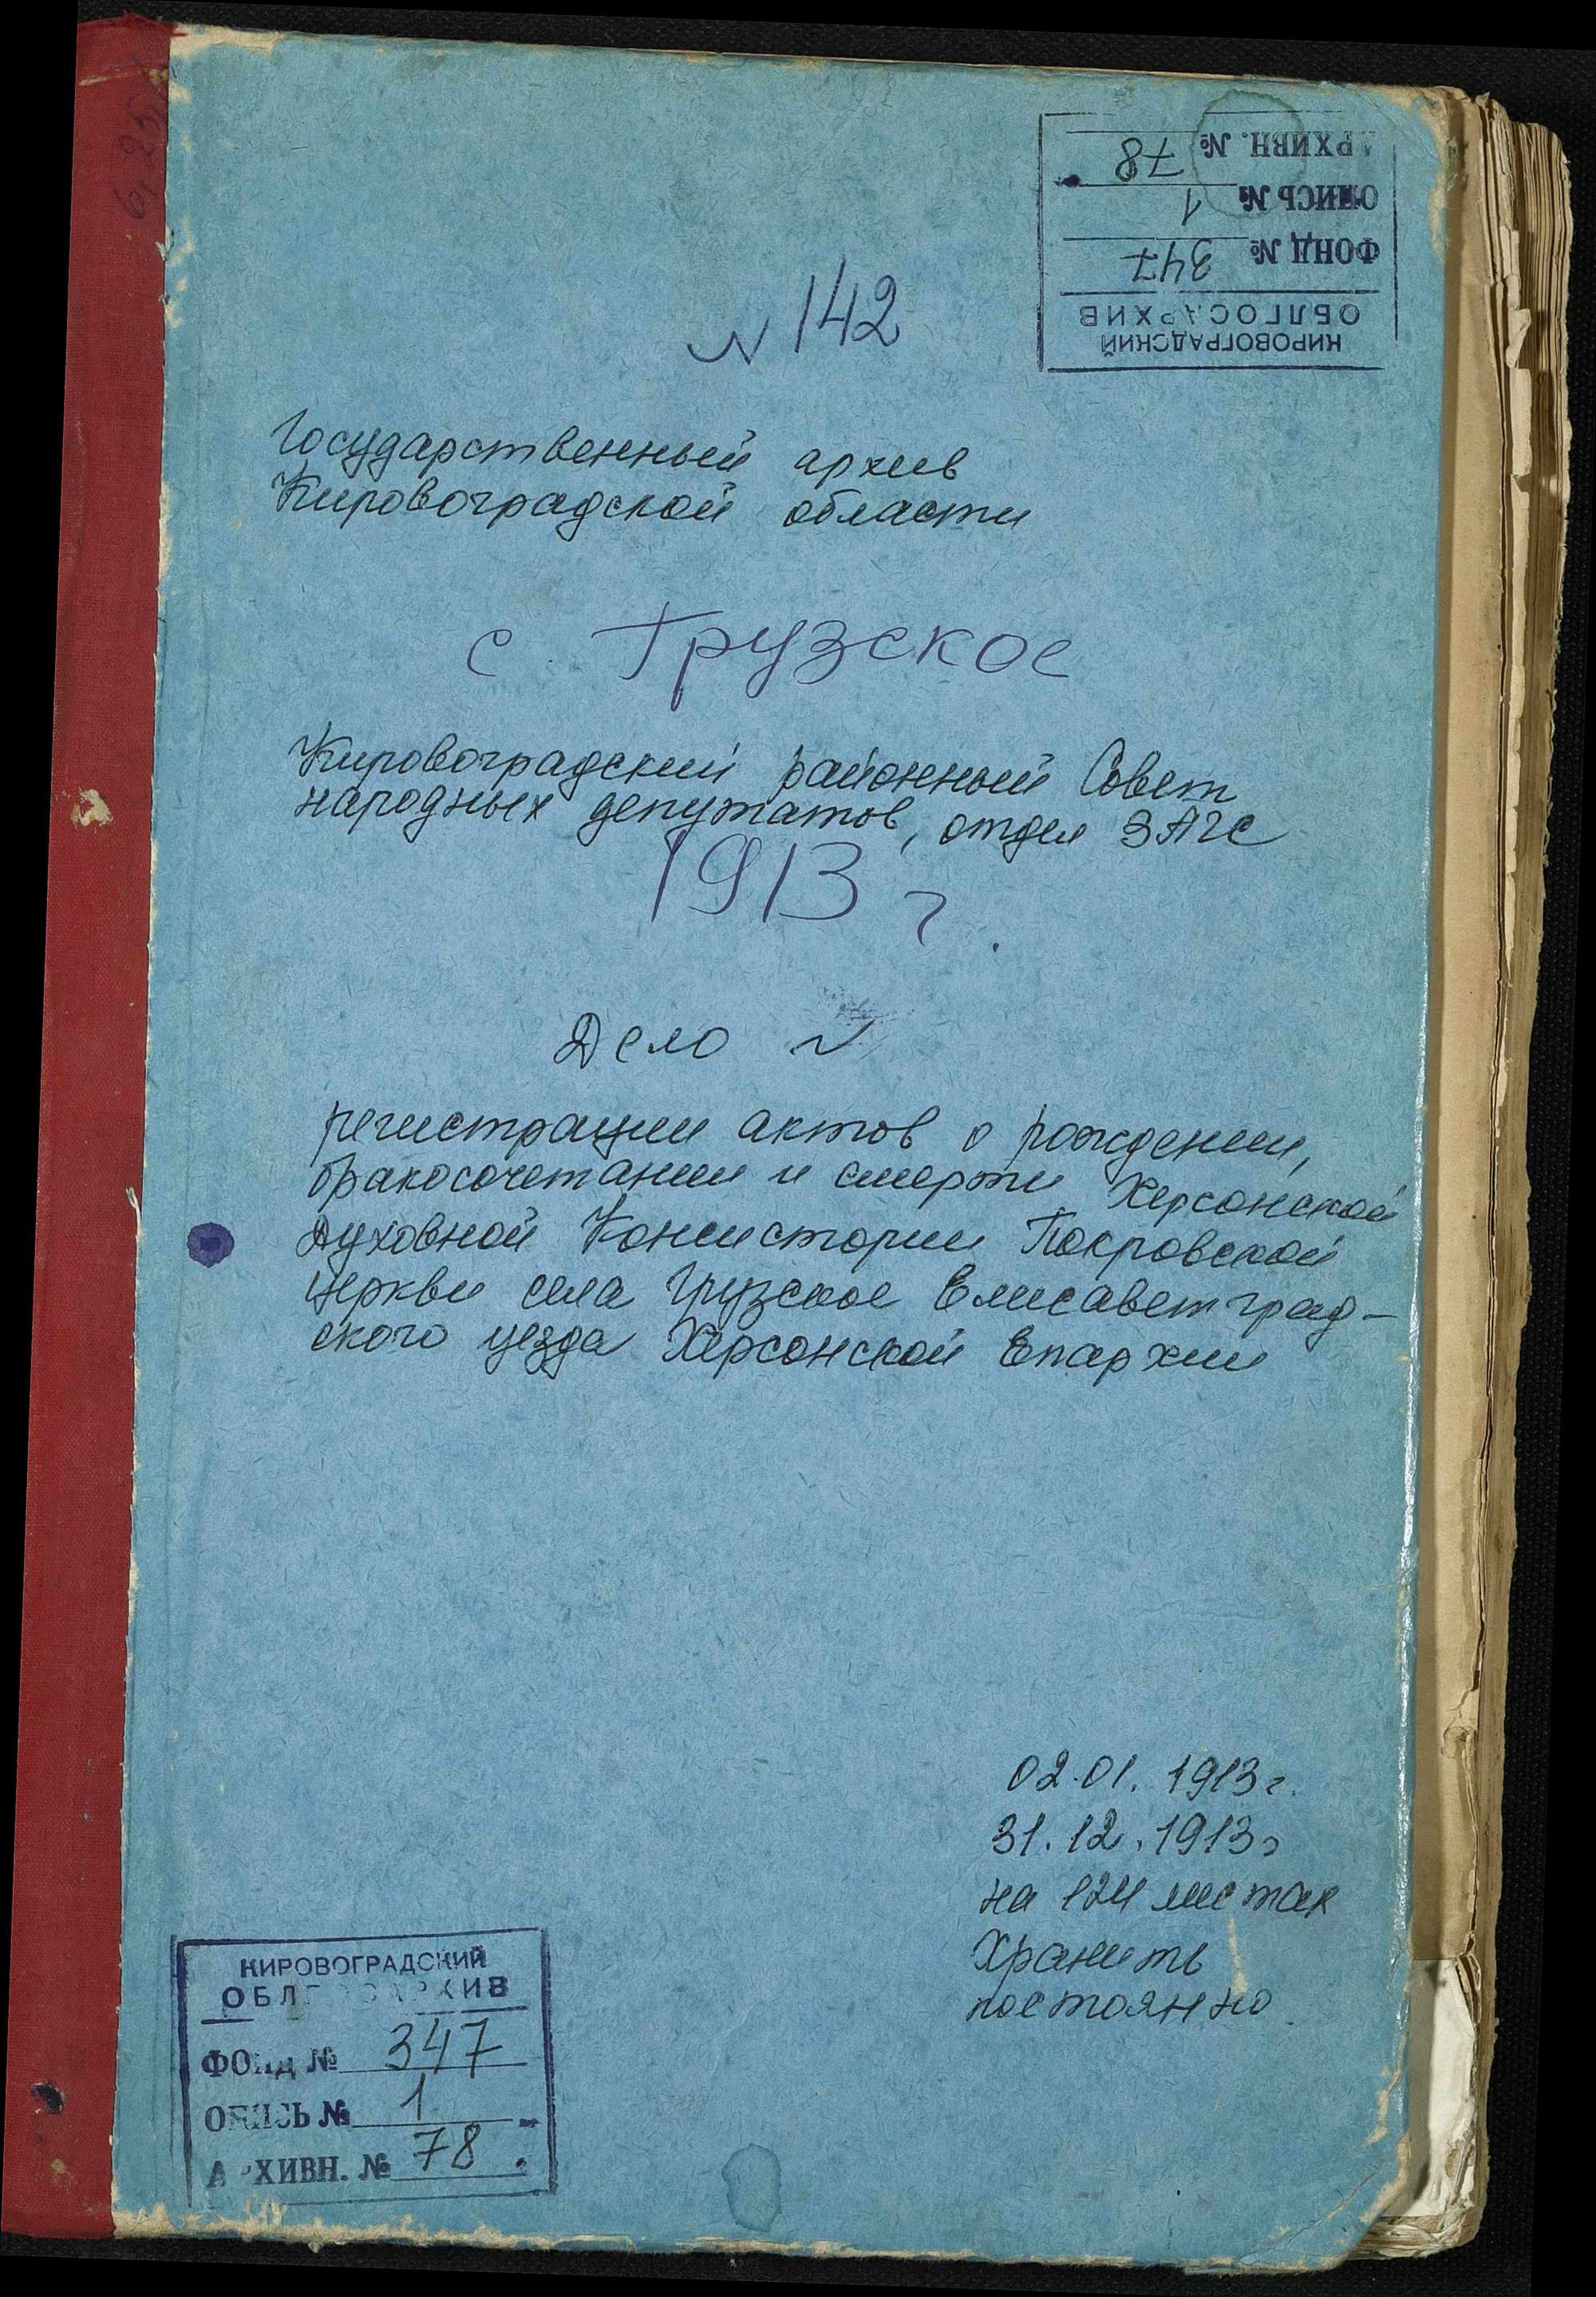 АРХИВН. № 78
ОПИСЬ № 1
ФОНД № 347
ОБЛГОСАРХИВ
КИРОВОГРАДСКИЙ
N 142
Государственный архив
Кировоградской области
с. Грузское
Кировоградский районный Совет
народных депутатов, отдел ЗАГС
1913 г.
Дело N
регистрации актов о рождении,
бракосочетании и смерти Херсонской
Духовной Консистории Покровской
церкви села Грузское Елисаветград-
ского уезда Херсонской Епархии
02.01.1913г.
31.12.1913г
на 124 листах
Хранить
постоянно
КИРОВОГРАДСКИЙ
ОБЛГОСАРХИВ
ФОНД № 347
ОПИСЬ № 1
АРХИВН. № 78